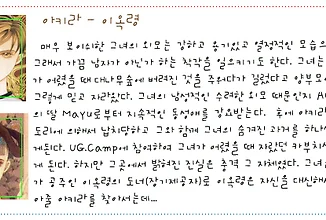 아키라 - 이옥령
매우 보이쉬한 그녀의 외모는 강하고 용기있고 열정적인 모습의
그래서 가끔 남자가 아닌가 하는 착각을 일으키기도 한다. 그녀는
가 어렸을 때 대나무숲에 버려진 것을 주워다가 길렀다고 양부모
그렇게 믿고 자라왔다. 그녀의 남성적인 수려한 외모 때문인지
의 딸 Mayu로부터 지속적인 동성애를 강요받는다. 후에 아키라
도리에 의해서 납치당하고 그와 함께 그녀의 숨겨진 과거를 하나
게된다. UG.Camp에 참여하여 그녀가 어렸을 때 자랐던 카부치
게 된다. 하지만 그 곳에서 밝혀진 진실은 충격 그 자체였다. 그녀
가 공주인 이옥령의 도너(장기제공자)로 이옥령은 자신을 대신해
아줄 아키라를 찾아서는데...